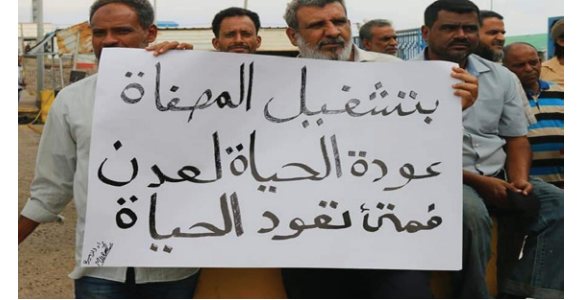 بتشغيل المصفاة
عودة الحياة لعدن
فمتئ تعود الحياة